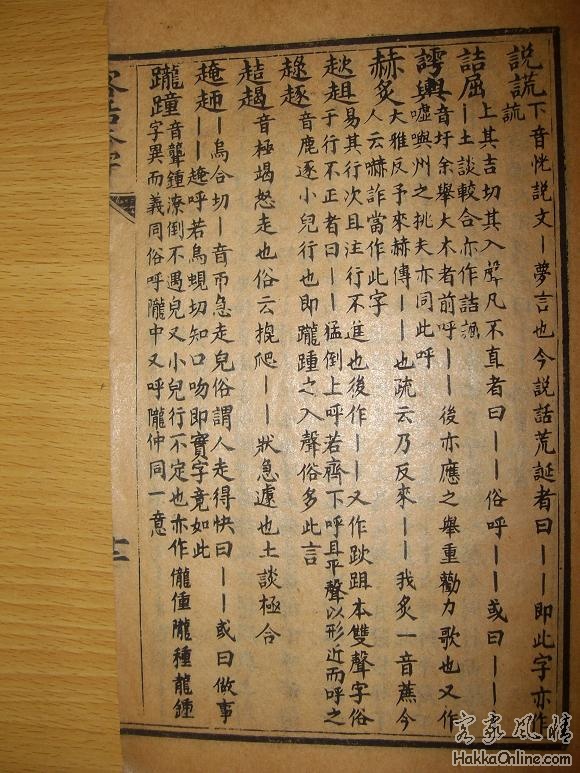 說謊 下音恍說文丨夢言也今說話荒誕者曰丨丨即此字亦作
謊
詰屈 上其吉切其入聲凡不直者曰丨丨俗呼丨丨或曰丨丨
丨土談較合亦作詰詘
謣輿 音圩余舉大木者前呼丨丨後亦應之舉重勸力歌也又作
噓嶼州之挑夫亦同此呼
赫炙 大雅反予來赫傳丨丨也疏云乃反來丨丨我炙一音蔗今
人云嚇詐當作此字
趑趄 易其行次且注行不進也後作丨丨又作跙本雙聲字俗
于行不正者曰丨丨猛倒上呼若齊下呼且平聲以形近而呼之
趢逐 音鹿逐小兒行也即躘踵之入聲俗多此言
趌 音極竭怒走也俗云爬丨丨狀急遽也土談極合
丨丨烏合切丨音帀急走皃俗謂人走得快曰丨丨或曰做事
丨丨呼若烏蜆切知口吻即實字竟如此
躘蹱 音聾鍾潦倒不遇皃又小兒行不定也亦作儱偅隴種龍鍾
字異而義同俗呼隴中又呼隴仲同一意
客家風情
HakkaOnline.com